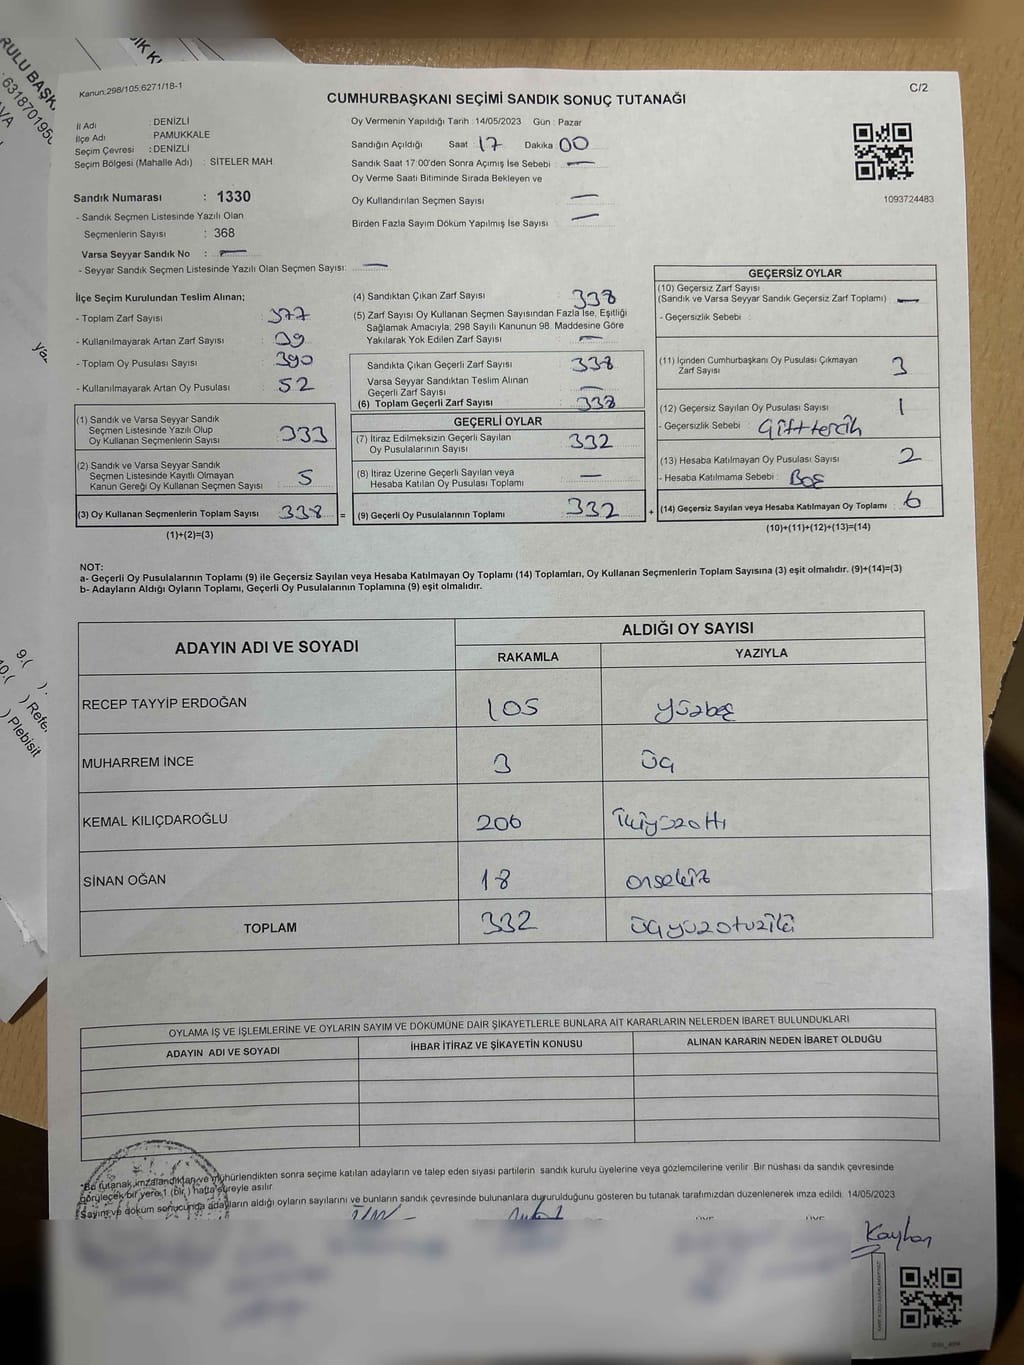 Kanun:298/105;6271/18-1
C/2
CUMHURBAŞKANI SEÇİMİ SANDIK SONUÇ TUTANAĞI
İl Adı : DENİZLİ
İlçe Adı : PAMUKKALE
Seçim Çevresi : DENİZLİ
Seçim Bölgesi (Mahalle Adı) : SİTELER MAH.
Sandık Numarası : 1330
- Sandık Seçmen Listesinde Yazılı Olan
Seçmenlerin Sayısı : 368
Varsa Seyyar Sandık No : —
- Seyyar Sandık Seçmen Listesinde Yazılı Olan Seçmen Sayısı: —
Oy Vermenin Yapıldığı Tarih : 14/05/2023 Gün : Pazar
Sandığın Açıldığı Saat : 17 Dakika : 00
Sandık Saat 17:00'den Sonra Açımış İse Sebebi : —
Oy Verme Saati Bitiminde Sırada Bekleyen ve
Oy Kullandırılan Seçmen Sayısı : —
Birden Fazla Sayım Döküm Yapılmış İse Sayısı : —
1093724483
İlçe Seçim Kurulundan Teslim Alınan;
- Toplam Zarf Sayısı : 377
- Kullanılmayarak Artan Zarf Sayısı : 39
- Toplam Oy Pusulası Sayısı : 390
- Kullanılmayarak Artan Oy Pusulası : 52
(1) Sandık ve Varsa Seyyar Sandık
Seçmen Listesinde Yazılı Olup
Oy Kullanan Seçmenlerin Sayısı : 333
(2) Sandık ve Varsa Seyyar Sandık
Seçmen Listesinde Kayıtlı Olmayan
Kanun Gereği Oy Kullanan Seçmen Sayısı : 5
(3) Oy Kullanan Seçmenlerin Toplam Sayısı : 338 =
(1)+(2)=(3)
(4) Sandıktan Çıkan Zarf Sayısı : 338
(5) Zarf Sayısı Oy Kullanan Seçmen Sayısından Fazla İse, Eşitliği
Sağlamak Amacıyla; 298 Sayılı Kanunun 98. Maddesine Göre
Yakılarak Yok Edilen Zarf Sayısı : —
Sandıkta Çıkan Geçerli Zarf Sayısı : 338
Varsa Seyyar Sandıktan Teslim Alınan
Geçerli Zarf Sayısı : —
(6) Toplam Geçerli Zarf Sayısı : 338
GEÇERLİ OYLAR
(7) İtiraz Edilmeksizin Geçerli Sayılan
Oy Pusulalarının Sayısı : 332
(8) İtiraz Üzerine Geçerli Sayılan veya
Hesaba Katılan Oy Pusulası Toplamı : —
(9) Geçerli Oy Pusulalarının Toplamı : 332 +
GEÇERSİZ OYLAR
(10) Geçersiz Zarf Sayısı
(Sandık ve Varsa Seyyar Sandık Geçersiz Zarf Toplamı) : —
- Geçersizlik Sebebi :
(11) İçinden Cumhurbaşkanı Oy Pusulası Çıkmayan
Zarf Sayısı : 3
(12) Geçersiz Sayılan Oy Pusulası Sayısı : 1
- Geçersizlik Sebebi : Çift tercih
(13) Hesaba Katılmayan Oy Pusulası Sayısı : 2
- Hesaba Katılmama Sebebi : Boş
(14) Geçersiz Sayılan veya Hesaba Katılmayan Oy Toplamı : 6
(10)+(11)+(12)+(13)=(14)
NOT:
a- Geçerli Oy Pusulalarının Toplamı (9) ile Geçersiz Sayılan veya Hesaba Katılmayan Oy Toplamı (14) Toplamları, Oy Kullanan Seçmenlerin Toplam Sayısına (3) eşit olmalıdır. (9)+(14)=(3)
b- Adayların Aldığı Oyların Toplamı, Geçerli Oy Pusulalarının Toplamına (9) eşit olmalıdır.
ADAYIN ADI VE SOYADI ALDIĞI OY SAYISI
RAKAMLA YAZIYLA
RECEP TAYYİP ERDOĞAN 105 yüzbeş
MUHARREM İNCE 3 üç
KEMAL KILIÇDAROĞLU 206 ikiyüzaltı
SİNAN OĞAN 18 onsekiz
TOPLAM 332 üçyüzotuziki
OYLAMA İŞ VE İŞLEMLERİNE VE OYLARIN SAYIM VE DÖKÜMÜNE DAİR ŞİKAYETLERLE BUNLARA AİT KARARLARIN NELERDEN İBARET BULUNDUKLARI
ADAYIN ADI VE SOYADI İHBAR İTİRAZ VE ŞİKAYETİN KONUSU ALINAN KARARIN NEDEN İBARET OLDUĞU
*Bu tutanak imzalandıktan ve mühürlendikten sonra seçime katılan adayların ve talep eden siyasi partilerin sandık kurulu üyelerine veya gözlemcilerine verilir. Bir nüshası da sandık çevresinde
görülecek bir yere 1 (bir) hafta süreyle asılır.
Sayım ve döküm sonucunda adayların aldığı oyların sayılarını ve bunların sandık çevresinde bulunanlara duyurulduğunu gösteren bu tutanak tarafımızdan düzenlenerek imza edildi. 14/05/2023
Kayhan
RULU BAŞK
631870195
9.(
10.( ).
) Refe
) Plebisit